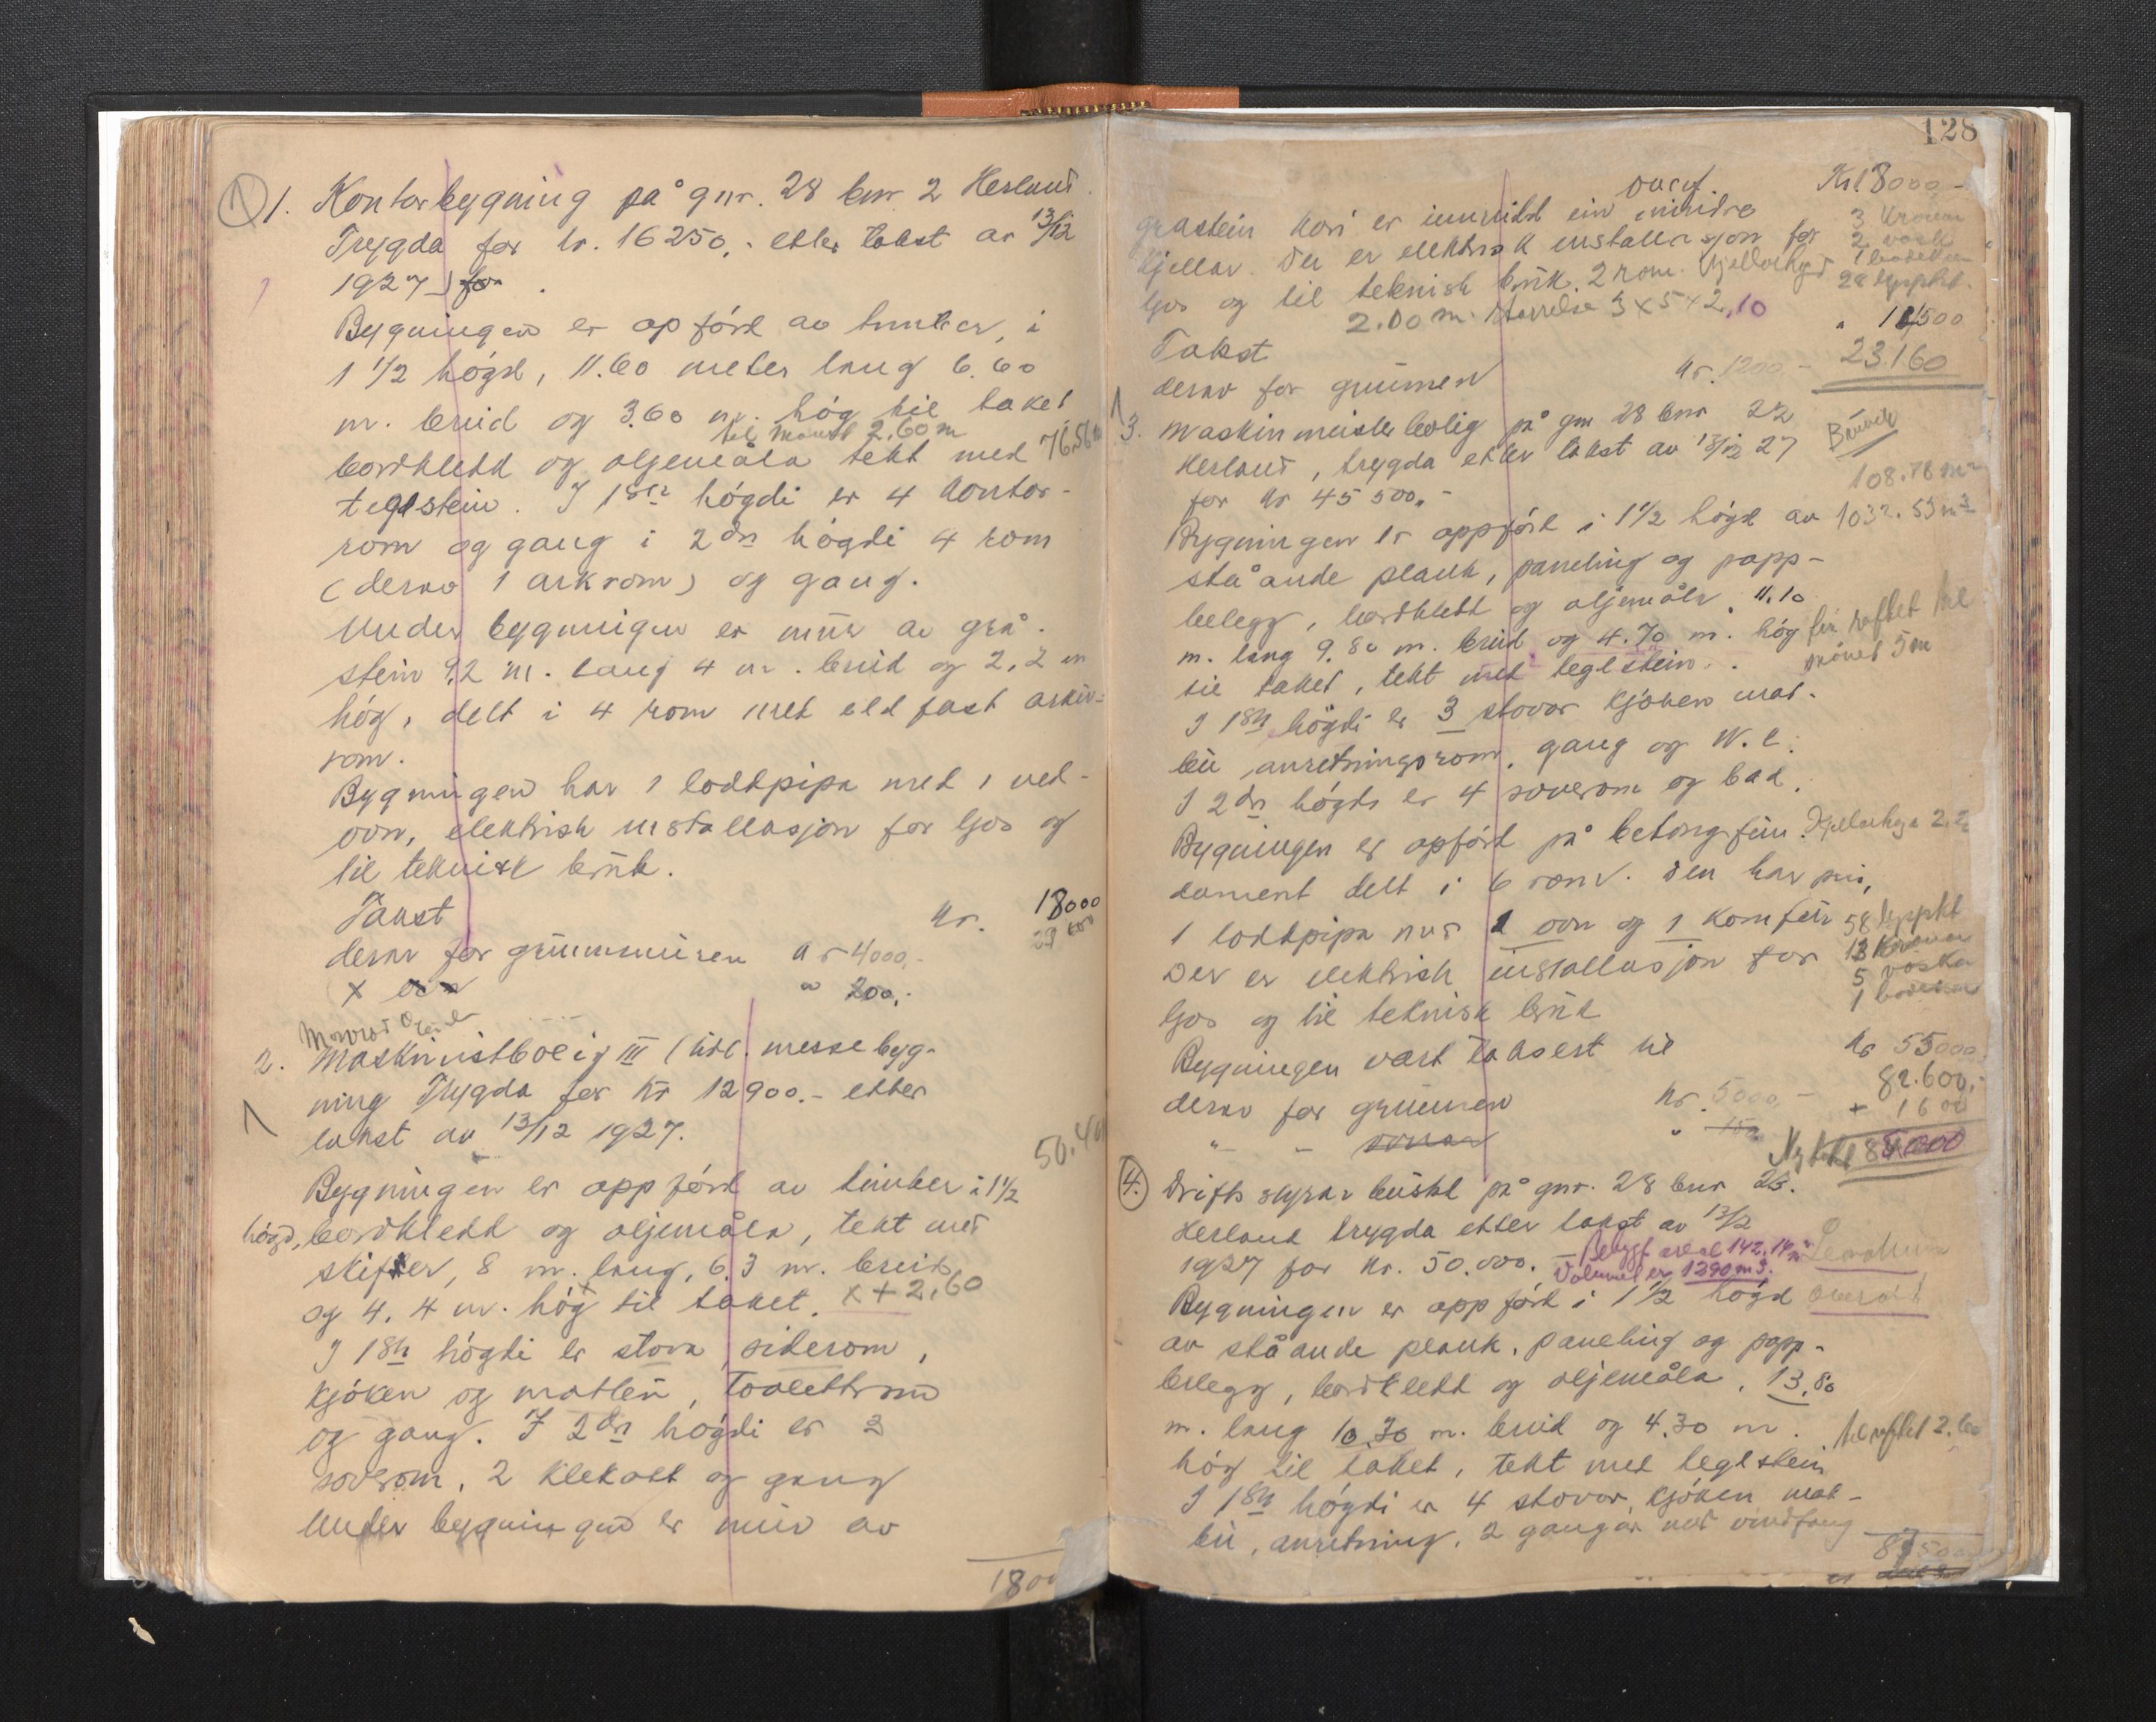 1. Kontorbygning på gnr. 28 bnr 2 Herland.
Trygda for kr. 16250,- etter takst av 13/12
1927) for
Bygningen er opförd av tømber, i
1 1/2 högd, 11.60 meter lang 6.60
m. breid og 3.60 m. hög til taket
til mönet 2.60 m
bordkledd og oljemåla tekt med 76.56 m
teglstein. I 1ste högdi er 4 kontor-
rom og gang i 2dre högdi 4 rom
(derav 1 arkrom) og gang.
Under bygningen er mur av grå-
stein 9,2 m. lang 4 m. breid og 2,2 m
hög, delt i 4 rom med eldfast arkiv-
rom.
Bygningen har 1 loddpipa med 1 ved-
ovn, elektrisk installasjon for ljos og
til teknisk bruk.
Takst kr. 18000
derav for grunnmuren kr 4000,-
x ovn " 200,-
2. Maskinistbolig III (tidl. messebyg-
ning Trygda for kr 12900.- etter
takst av 13/12 1927.
50.40
Bygningen er oppförd av timber i 1 1/2
högd, bordkledd og oljemåla, tekt med
skifer, 8 m. lang, 6,3 m. breid
og 4,4 m. hög til taket. x + 2,60
I 1ste högdi er stova, siderom,
kjöken og matbu, toalettrom
og gang. I 2dre högdi er 3
soverom, 2 klekott og gang
Under bygningen er mur av
1800
128
gråstein kori er innreidd ein mindre
kjellar. Der er elektrisk installasjon for
ljos og til teknisk bruk. 2 rom. Kjellarhögd
2.00 m. Störrelse 3 x 5 x 2,10
Kr 18000-
3 Kroner
2 vask
28 lyspkt.
" 11500
Takst 23.160
derav for grunnen kr. 1200.-
3. Maskinmeisterbolig på gnr 28 bnr 22
Herland, trygda etter takst av 13/12 27
for kr 45 500.-
108.78 m2
Bygningen er oppförd i 1 1/2 högd av 1032.53 m3
ståande plank, paneling og papp-
belegg, bordkledd og oljemåla, 11.10
m. lang 9.80 m. breid og 4.70 m. hög
til taket, tekt med teglstein.
mönet 5 m
I 1ste högdi er 3 stovor kjöken mat-
bu anretningsrom, gang og W.c.
I 2dre högdi er 4 soverom og bad.
Bygningen er opförd på betongfun- Kjellarhögd 2.20
dament delt i 6 rom. Den har
1 loddpipa med 1 ovn og 1 komfur 58 lyspkt
Der er elektrisk installasjon for 13 Kroner
5 vaska
ljos og til teknisk bruk
Bygningen vart taksert til kr 55000.
82.600,-
+ 1600
derav for grunnen kr. 5000,-
" - ovnar
Ny takst 84000
4. Driftsstyrarbustad på gnr. 28 bnr 23.
Herland trygda etter takst av 13/12
1927 for kr. 50.000.-
Bebygt areal 142.14 m2
Volumet er 1290 m3.
Bygningen er oppförd i 1 1/2 högd
av ståande plank, paneling og papp-
belegg, bordkledd og oljemåla, 13,80
m. lang 10,30 m. breid og 4.30 m.
hög til taket, tekt med teglstein
I 1ste högdi er 4 stovor, kjöken mat-
bu, anretning, 2 gangar med vindfang